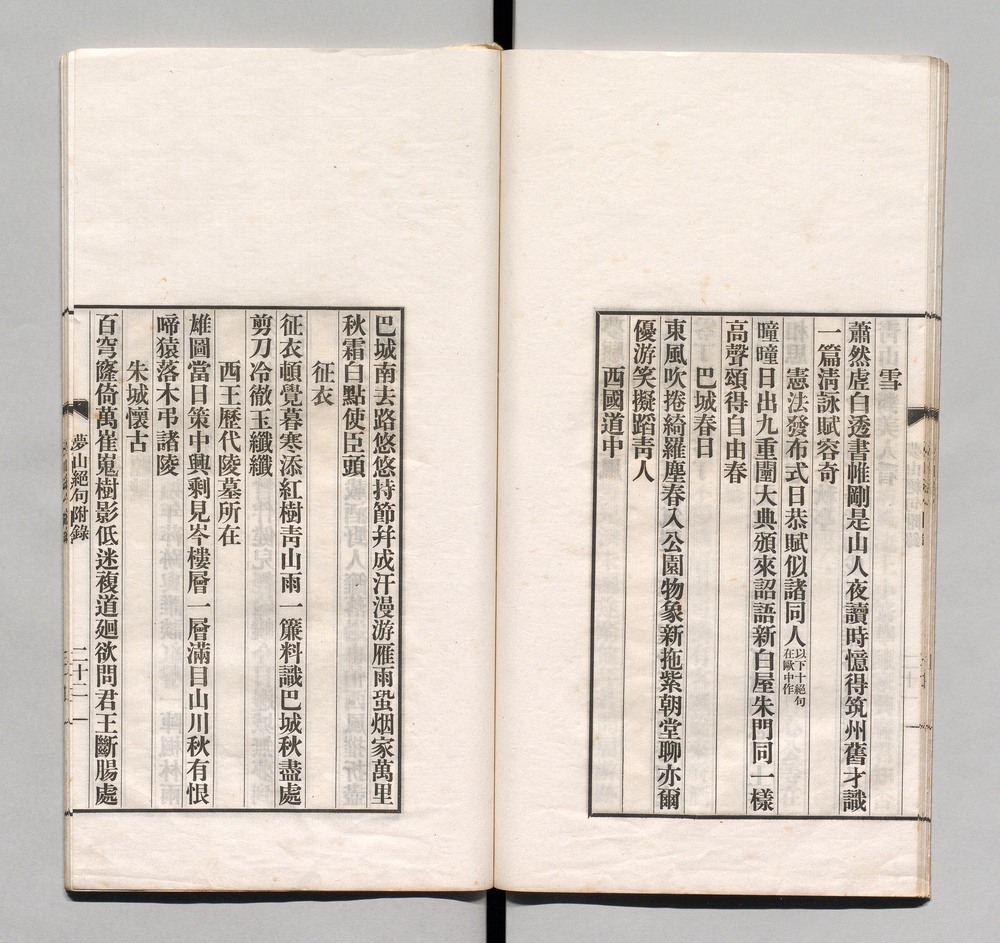 雪
蕭然虛白透書帷剛是山人夜讀時憶得筑州舊才識
一篇淸詠賦容奇
憲法發布式日恭賦似諸同人以下十絕句在歐中作
曈曈日出九重圍大典頒來詔語新白屋朱門同一樣
高聲頌得自由春
巴城春日
東風吹捲綺羅塵春入公園物象新拖紫朝堂聊亦爾
優游笑擬蹈靑人
西國道中
巴城南去路悠悠持節幷成汗漫游雁雨蛩烟家萬里
秋霜白點使臣頭
征衣
征衣頓覺暮寒添紅樹靑山雨一簾料識巴城秋盡處
剪刀冷徹玉纖纖
西王歷代陵墓所在
雄圖當日策中興剩見岑樓層一層滿目山川秋有恨
啼猿落木弔諸陵
朱城懷古
百穹窿倚萬崔嵬樹影低迷複道廻欲問君王斷腸處
夢山絕句附錄
二十二